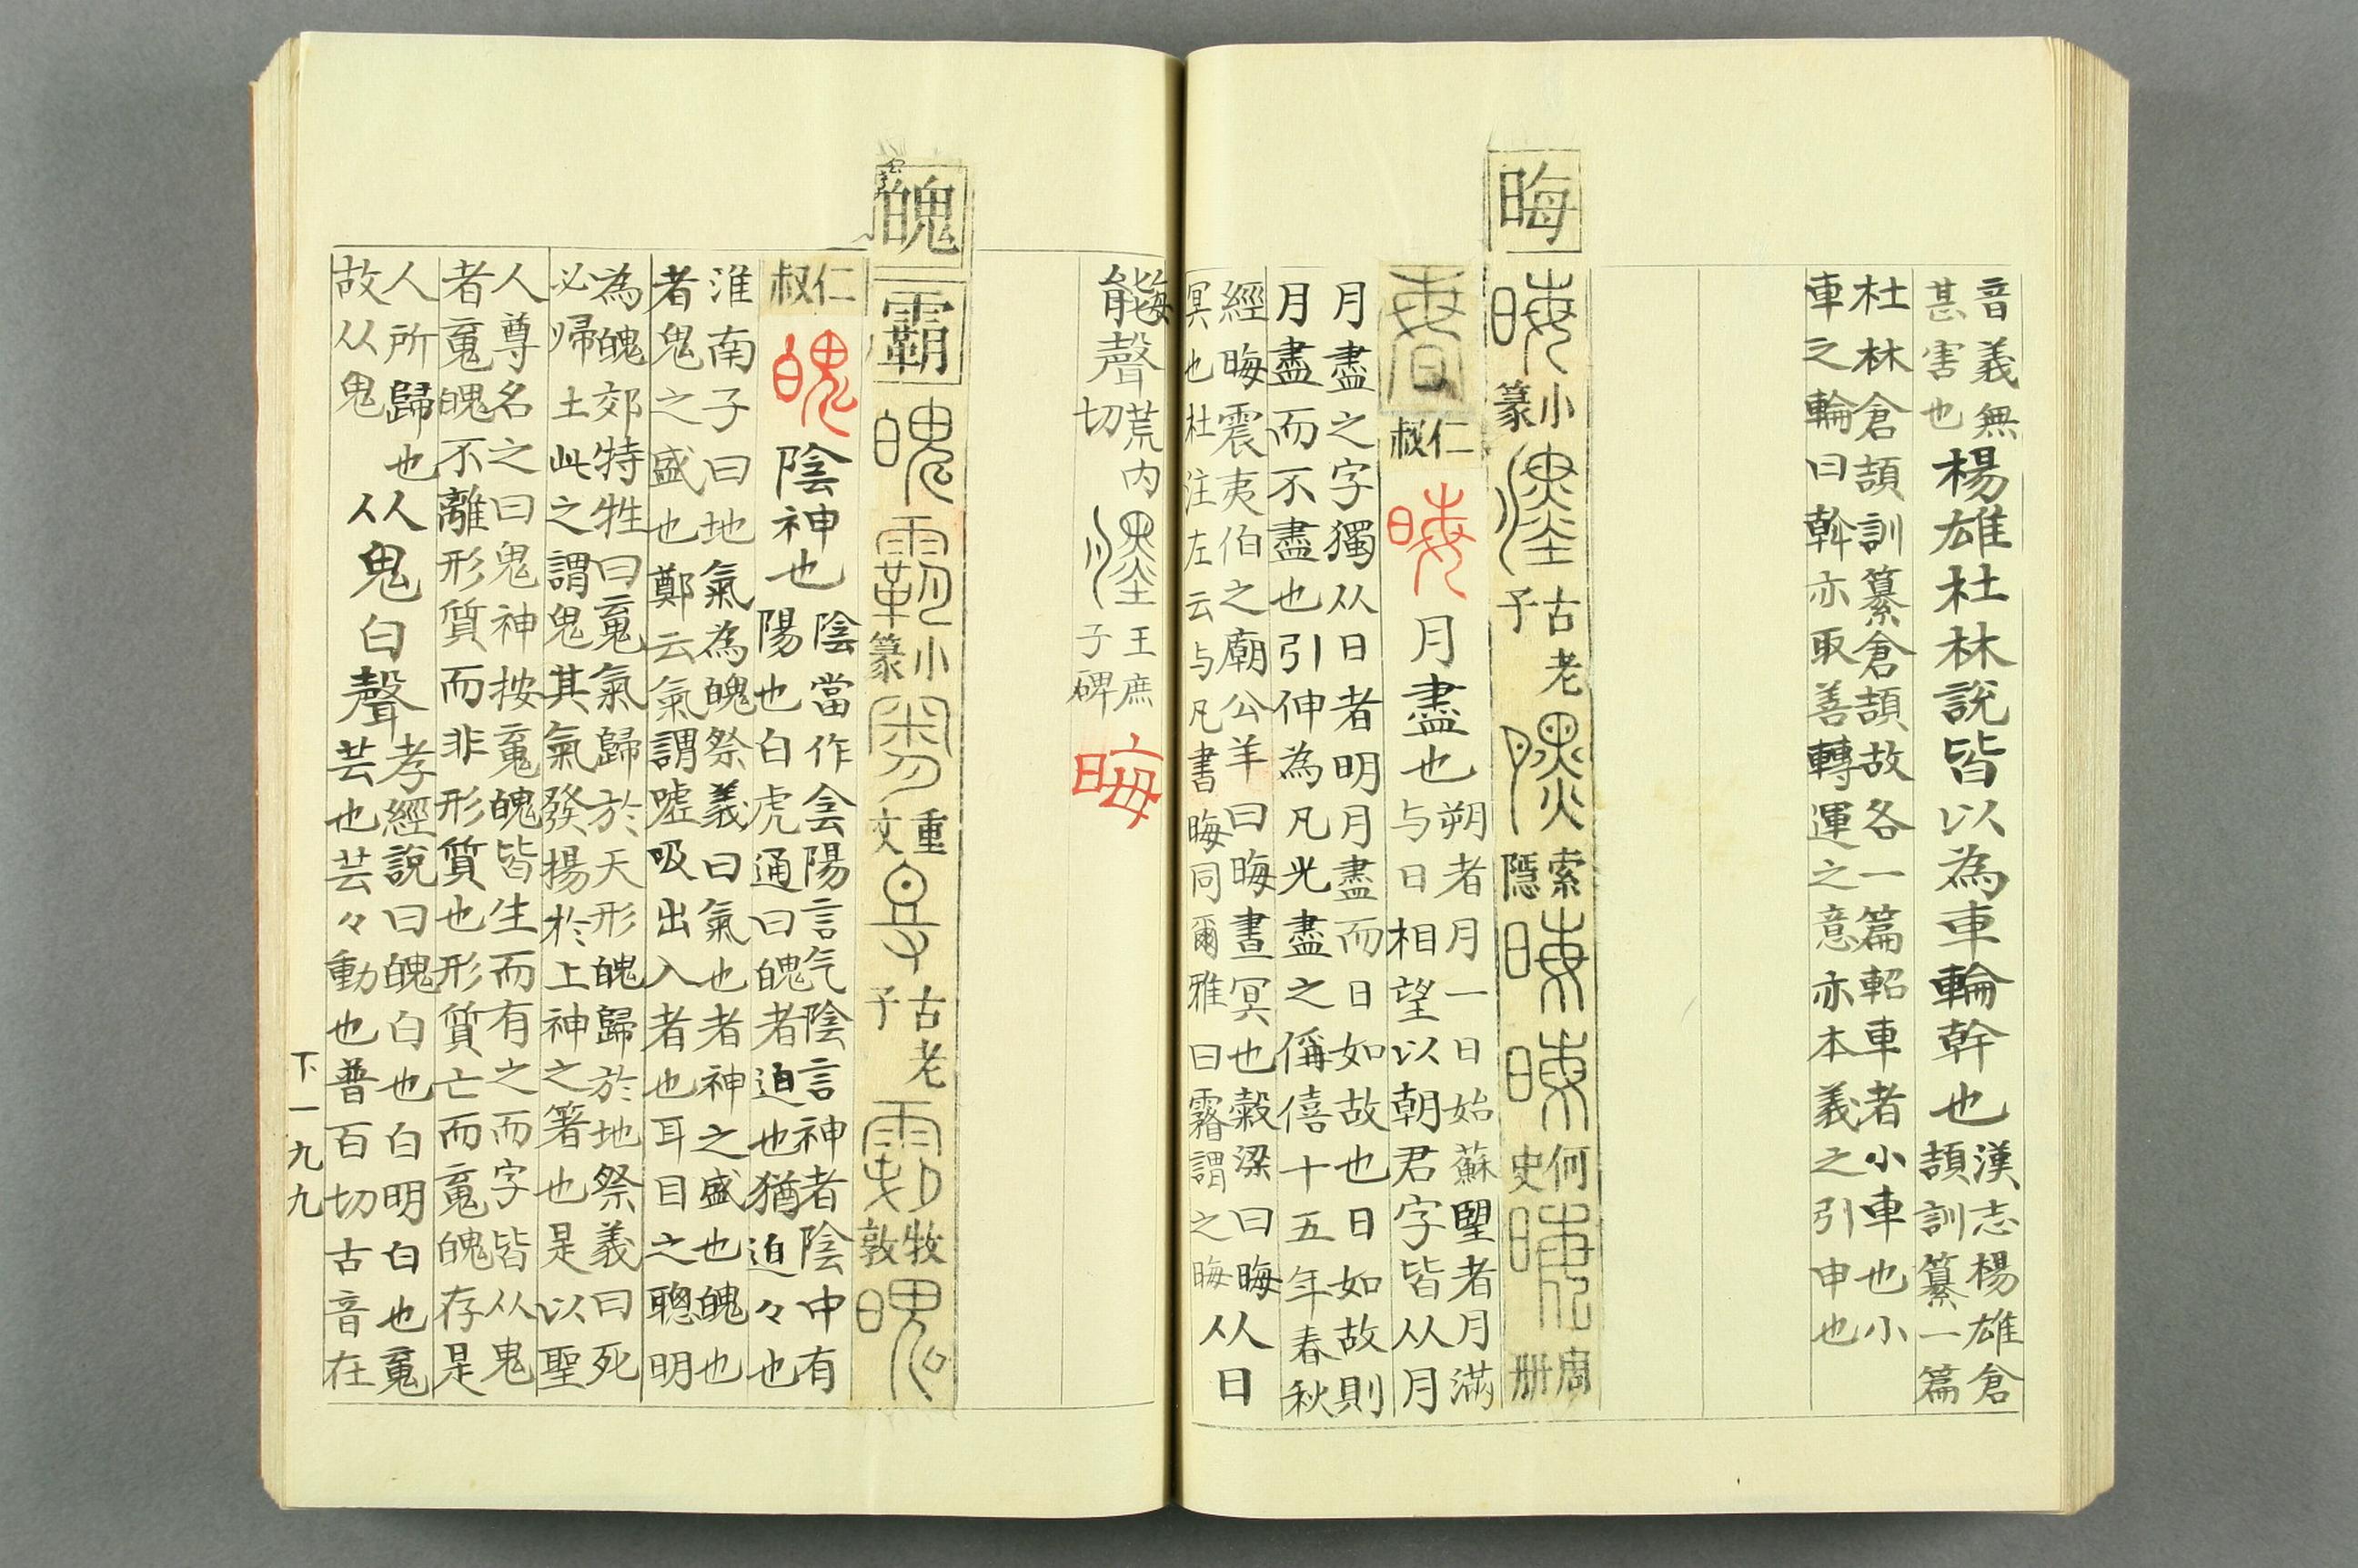 音義無
甚害也
楊雄杜林說皆以為車輪幹也
漢志楊雄倉
頡訓纂一篇
杜林倉頡訓纂倉頡故各一篇軺車者小車也小
車之輪曰斡亦取善轉運之意亦本義之引申也
晦
小
篆
古老
子
索
隱
何
史
周
册
仁
叔
月盡也
朔者月一日始蘇朢者月滿
与日相望以朝君字皆从月
月盡之字獨从日者明月盡而日如故也日如故則
月盡而不盡也引伸為凡光盡之偁僖十五年春秋
經晦震夷伯之廟公羊曰晦晝冥也穀梁曰晦
冥也杜注左云与凡書晦同爾雅曰霧謂之晦
从日
聲
荒内
切
王庶
子碑
晦
魄
霸
小
篆
重
文
古老
子
牧
敦
仁
叔
陰神也
陰當作侌陽言气陰言神者陰中有
陽也白虎通曰魄者迫也猶迫々也
淮南子曰地氣為魄祭義曰氣也者神之盛也魄也
者鬼之盛也鄭云氣謂噓吸出入者也耳目之聰明
為魄郊特牲曰䰟氣歸於天形魄歸於地祭義曰死
必歸土此之謂鬼其氣發揚於上神之箸也是以聖
人尊名之曰鬼神按䰟魄皆生而有之而字皆从鬼
者䰟魄不離形質而非形質也形質亡而䰟魄存是
人所歸也
故从鬼
从鬼白聲
孝經說曰魄白也白明白也䰟
芸也芸々動也普百切古音在
下一九九